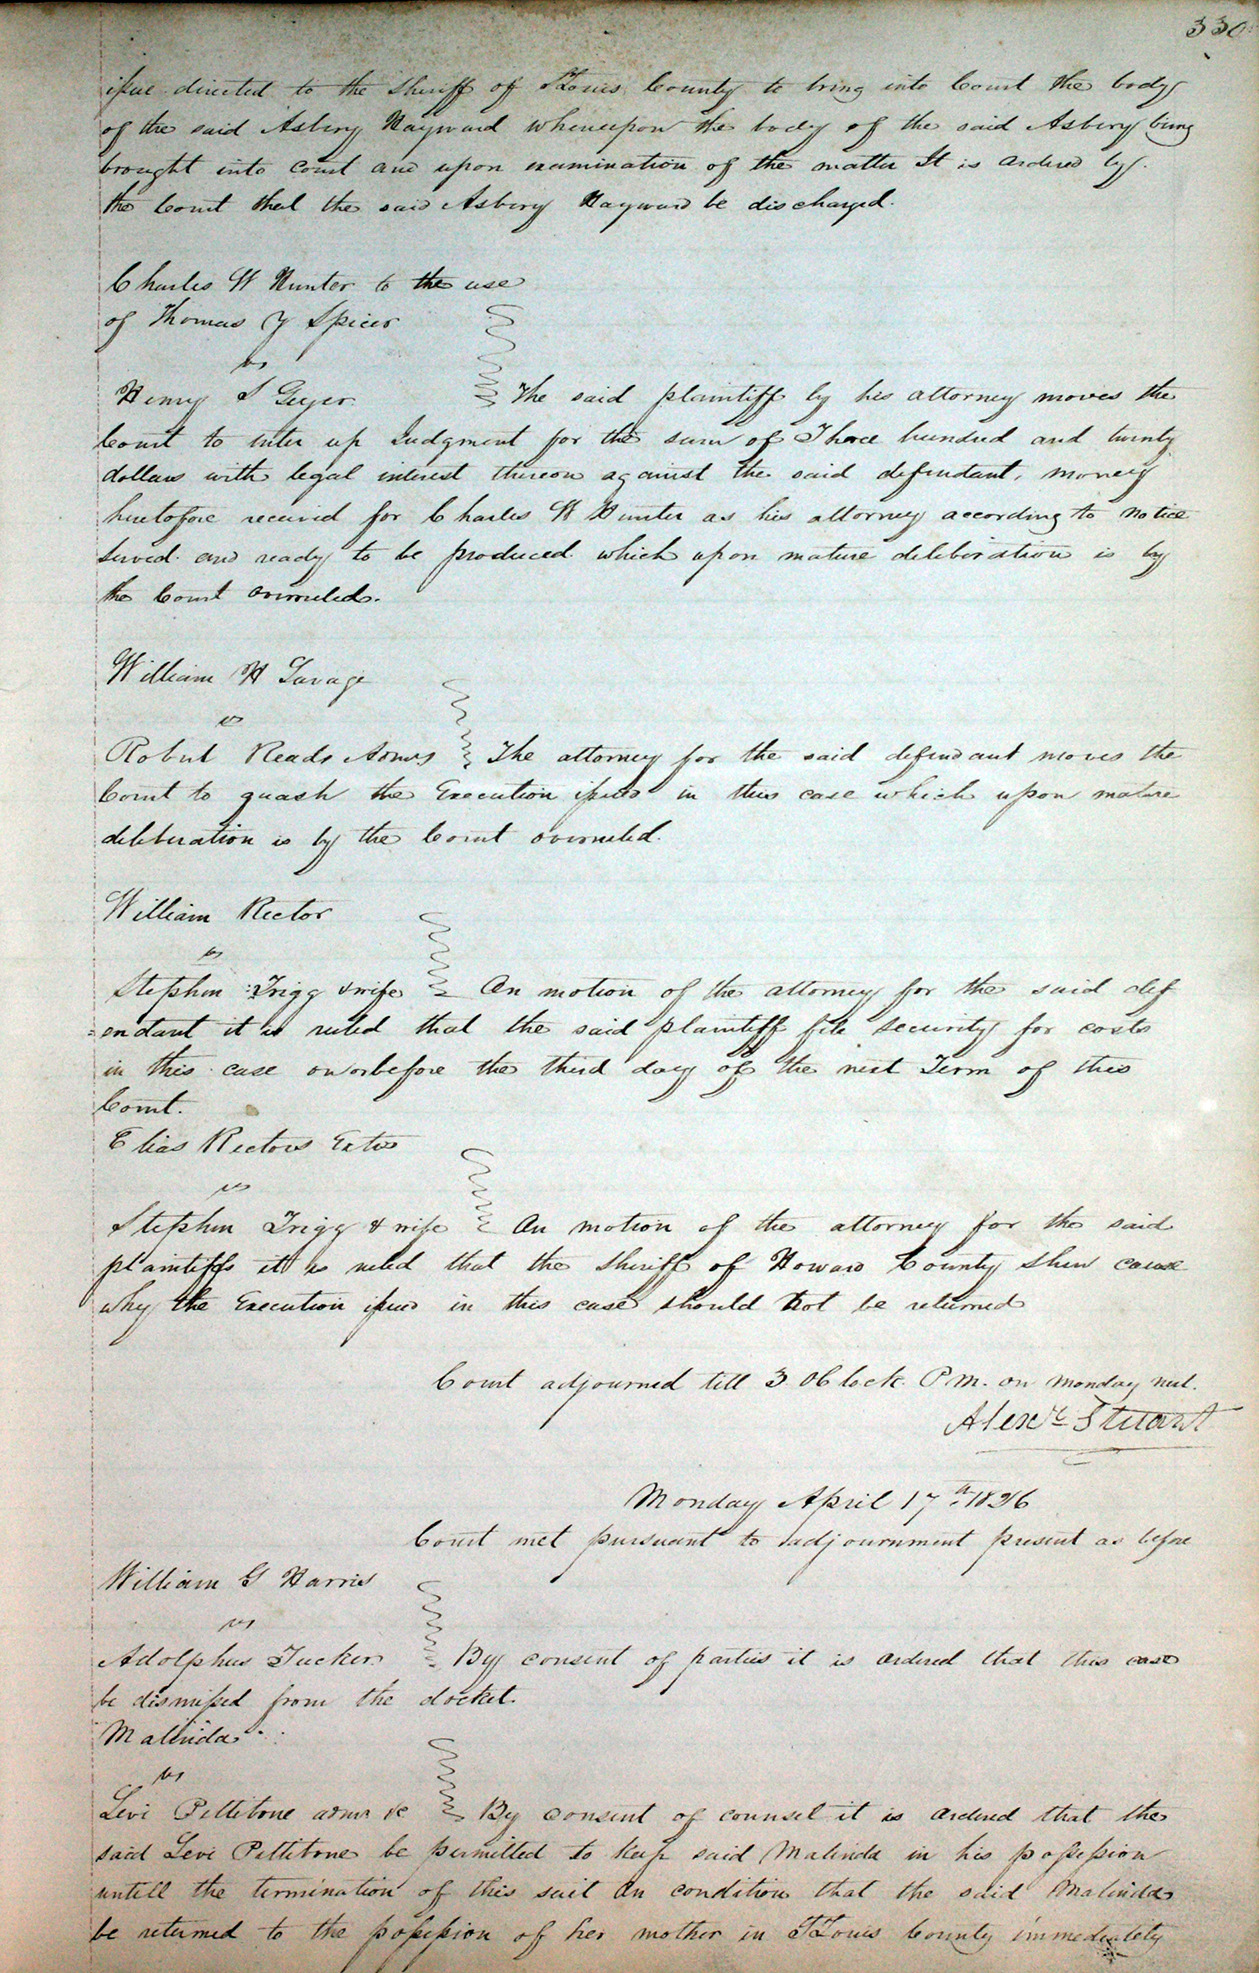 330
issue directed to the Sheriff of St Louis County to bring into Court the body
of the said Asbery Hayward whereupon the body of the said Asbery being
brought into court and upon examination of the matter It is ordered by
the Court that the said Asbery Hayward be discharged.
Charles W Hunter to the use
of Thomas Y Spicer
vs
Henry S Geyer The said plaintiff by his attorney moves the
Court to enter up Judgment for the sum of Three hundred and twenty
dollars with legal interest thereon against the said defendant, money
heretofore received for Charles W Hunter as his attorney according to notice
served and ready to be produced which upon mature deliberation is by
the Court overruled.
William H Savage
vs
Robert Reads Admrs The attorney for the said defendant moves the
Court to quash the Execution issued in this case which upon mature
deliberation is by the Court overruled.
William Rector
vs
Stephen Trigg & wife On motion of the attorney for the said def
=endant it is ruled that the said plaintiff file security for costs
in this case on or before the third day of the next Term of this
Court.
Elias Rectors Extrs
vs
Stephen Trigg & wife On motion of the attorney for the said
plaintiffs it is ruled that the Sheriff of Howard County shew cause
why the Execution issued in this case should not be returned
Court adjourned till 3 OClock P.M. on monday next.
Alexr Stuart
Monday April 17th 1826
Court met pursuant to adjournment present as before
William G Harris
vs
Adolphus Tucker By consent of parties it is ordered that this case
be dismissed from the docket.
Malinda
vs
Levi Pettibone admr &c By consent of counsel it is ordered that the
said Levi Pettibone be permitted to keep said Malinda in his possession
untill the termination of this suit on condition that the said Malinda
be returned to the possession of her mother in St Louis County immediately